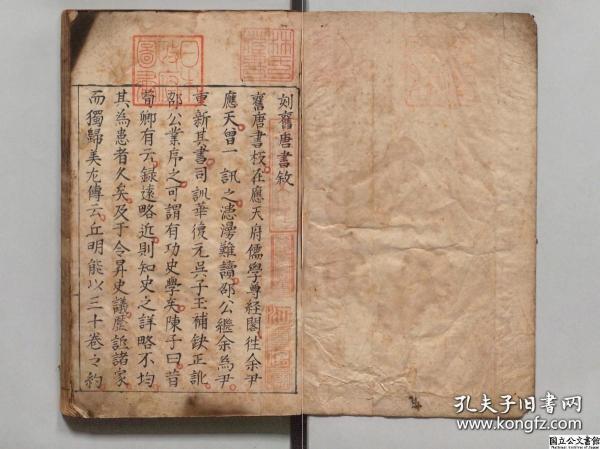 刻舊唐書敘
舊唐書校在應天府儒學尊經閣往余尹
應天曾一訊之漶漫難讀邵公繼余為尹
重新其書司訓華復元吳子玉補鈌正訛
邵公業序之可謂有功史學矣陳子曰昔
荀卿有云錄遠略近則知史之詳略不均
其為患者久矣及于令昇史議歷詆諸家
而獨歸美左傳云丘明能以三十卷之約
孔夫子旧书网
国立公文書館
National Archives of Japan